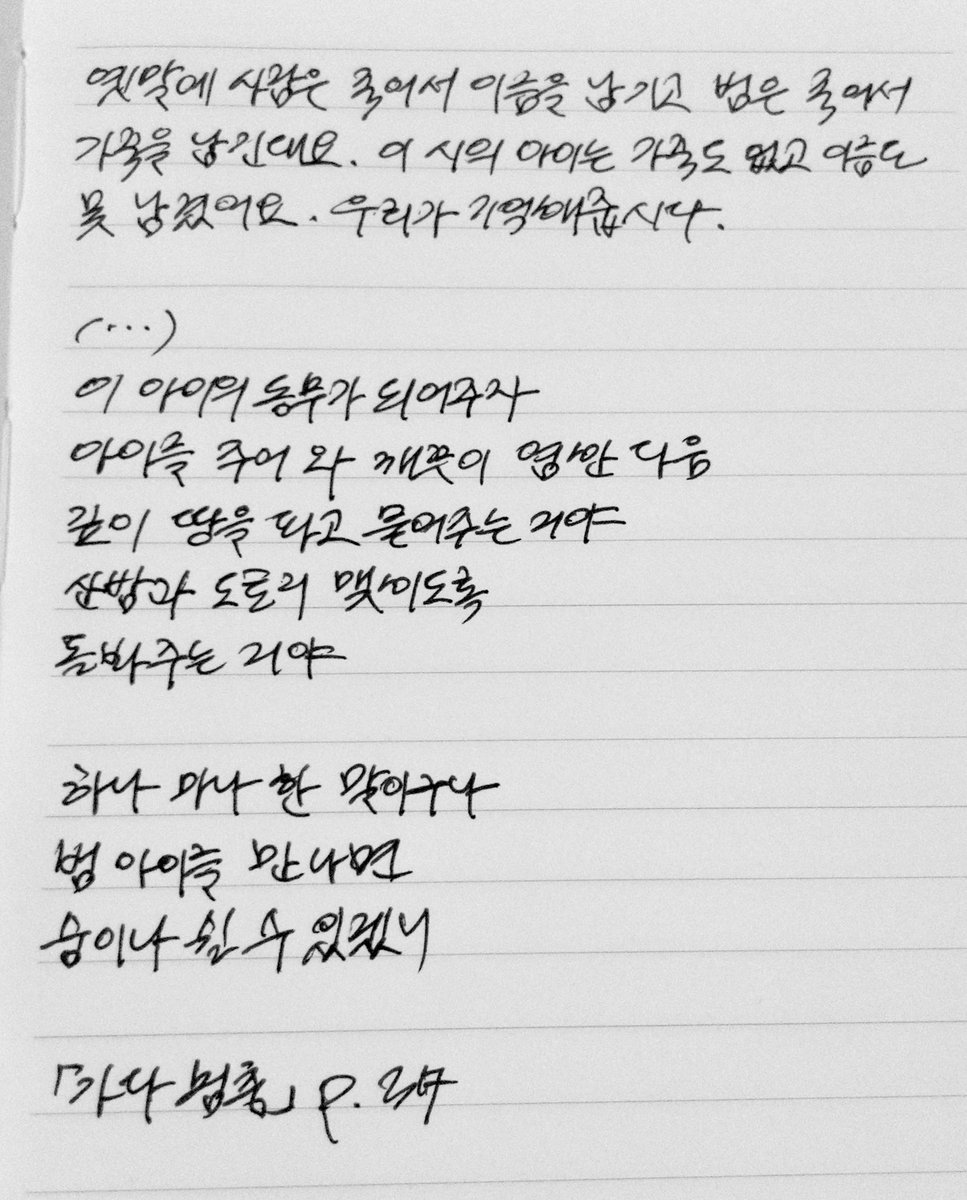 옛말에 사람은 죽어서 이름을 남기고 범은 죽어서
가죽을 남긴대요. 이 시의 아이는 가죽도 없고 이름도
못 남겼어요. 우리가 기억해줍시다.
(…)
이 아이의 동무가 되어주자
아이를 주어 와 깨끗이 염한 다음
깊이 땅을 파고 묻어주는 거야
산밤과 도토리 맺히도록
돌봐주는 거야
하나 마나 한 말이구나
범 아이를 만나면
숨이나 쉴 수 있겠니
「가다 멈춤」 p.